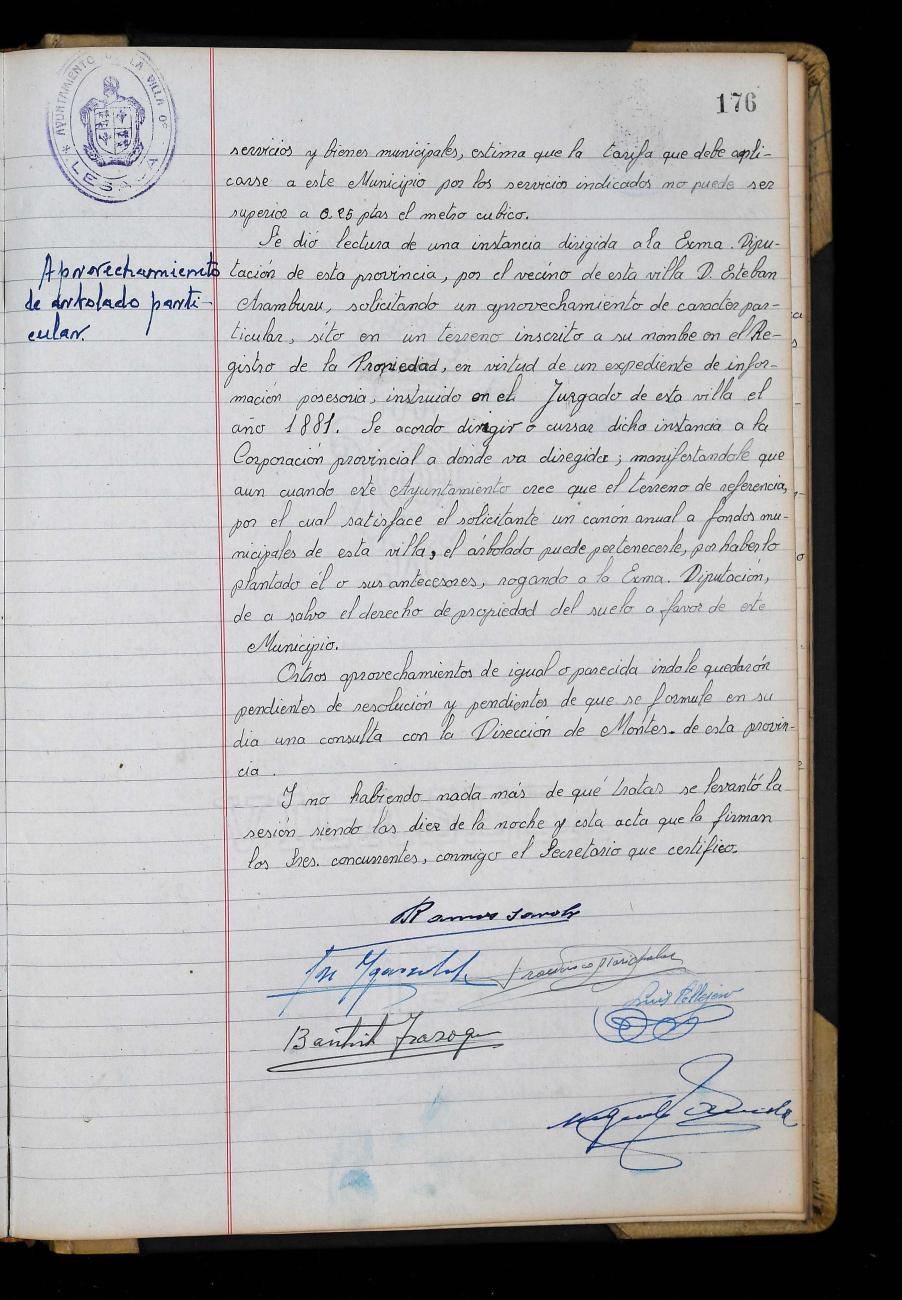 176
AYUNTAMIENTO DE LA VILLA DE
LESACA
servicios y bienes municipales, estima que la tarifa que debe apli-
carse a este Municipio por los servicios indicados no puede ser
superior a 0.25 ptas el metro cubico.
Se dió lectura de una instancia dirigida a la Exma. Dipu-
Aprovechamiento
de arbolado parti-
cular.
tación de esta provincia, por el vecino de esta villa D. Esteban
Aramburu, solicitando un aprovechamiento de caracter par-
ticular, sito en un terreno inscrito a su nombre en el Re-
gistro de la Propiedad, en virtud de un expediente de infor-
mación posesoria, instruido en el Juzgado de esta villa el
año 1881. Se acordo dirigir o cursar dicha instancia a la
Corporación provincial a donde va diregida; manifestandole que
aun cuando este Ayuntamiento cree que el terreno de referencia,
por el cual satisface el solicitante un canón anual a fondos mu-
nicipales de esta villa, el árbolado puede pertenecerle, por haberlo
plantado él o sus antecesores, rogando a la Exma. Diputación,
de a salvo el derecho de propiedad del suelo a favor de este
Municipio.
Ortros aprovechamientos de igual o parecida indole quedarón
pendientes de resolución y pendientes de que se formule en su
dia una consulta con la Dirección de Montes. de esta provin-
cia.
Y no habiendo nada más de qué tratar se levantó la
sesión siendo las diez de la noche y esta acta que la firman
los Sres. concurrentes, conmigo el Secretario que certifico.
Ramos
Francisco
Luis Pellejero